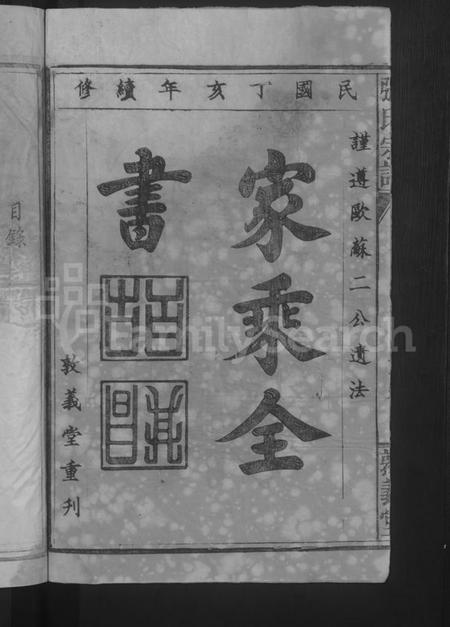 民國丁亥年續修
謹遵歐蘇二公遺法
家乘全
書
敦義堂重刊
目錄
FamilySearch